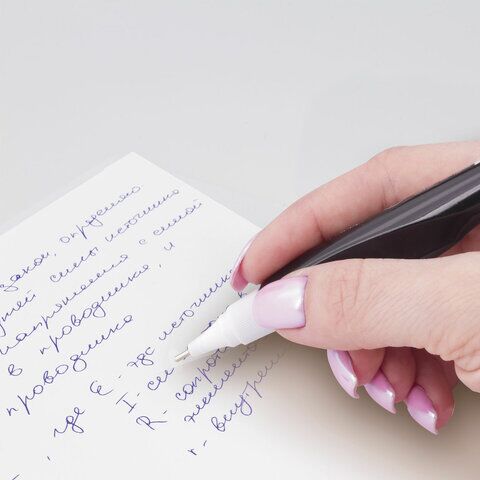 закон, определяю
щей силы источника
напряжения с силой
в проводнике, и
проводника
, где Ɛ - эдс источника
I - си
R - сопро
r - внутрен